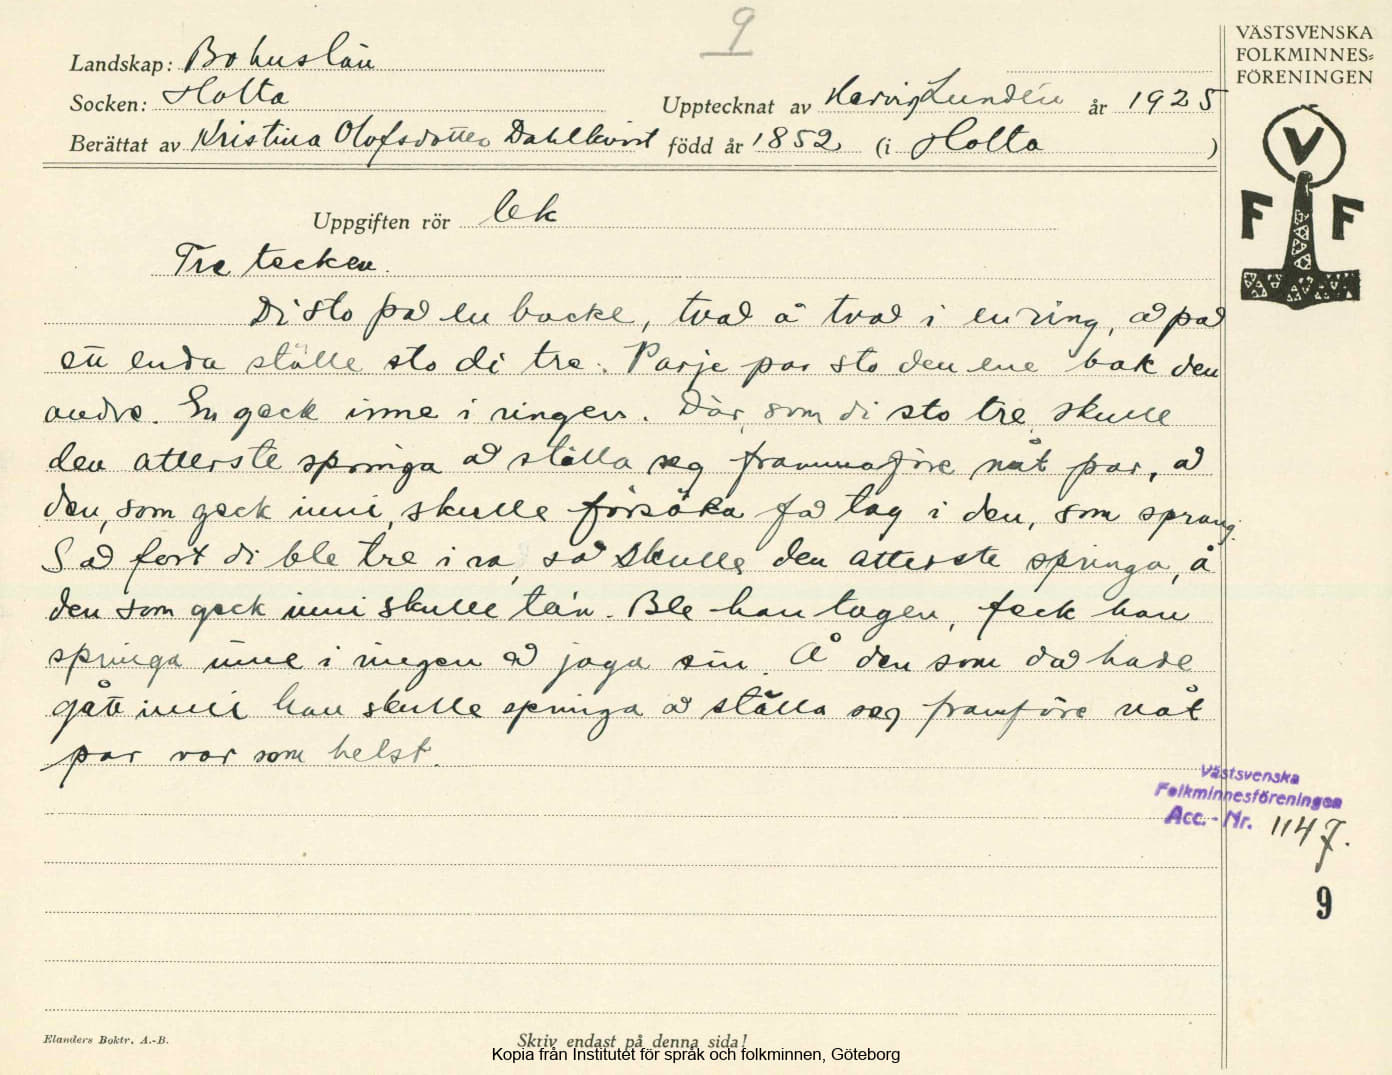 9
VÄSTSVENSKA
FOLKMINNES=
FÖRENINGEN
Landskap: Bohuslän
Socken: Holta Upptecknat av Hervig Lundén år 1925
Berättat av Kristina Olofsdotter Dahlkvist född år 1852 (i Holta )
V
F F
Uppgiften rör lek
Tre tecken.
Di sto på en backe, två å två i en ring, å på
ett enda ställe sto di tre. Varje par sto den ene bak den
andre. En geck inne i ringen. Där, som di sto tre, skulle
den atterste springa å ställa seg frammaföre nåt par, å
den, som geck inni, skulle försöka få tag i den, som sprang.
Så fort di ble tre i ra, så skulle den atterste springa, å
den som geck inni skulle ta'n. Ble han tagen, feck han
springa inne i ringen å jaga ein. Å den som då hade
gått inni han skulle springa å ställa seg framföre nåt
par var som helst.
Västsvenska
Folkminnesföreningen
Acc.-Nr. 1147.
9
Elanders Boktr. A.-B.
Skriv endast på denna sida!
Kopia från Institutet för språk och folkminnen, Göteborg